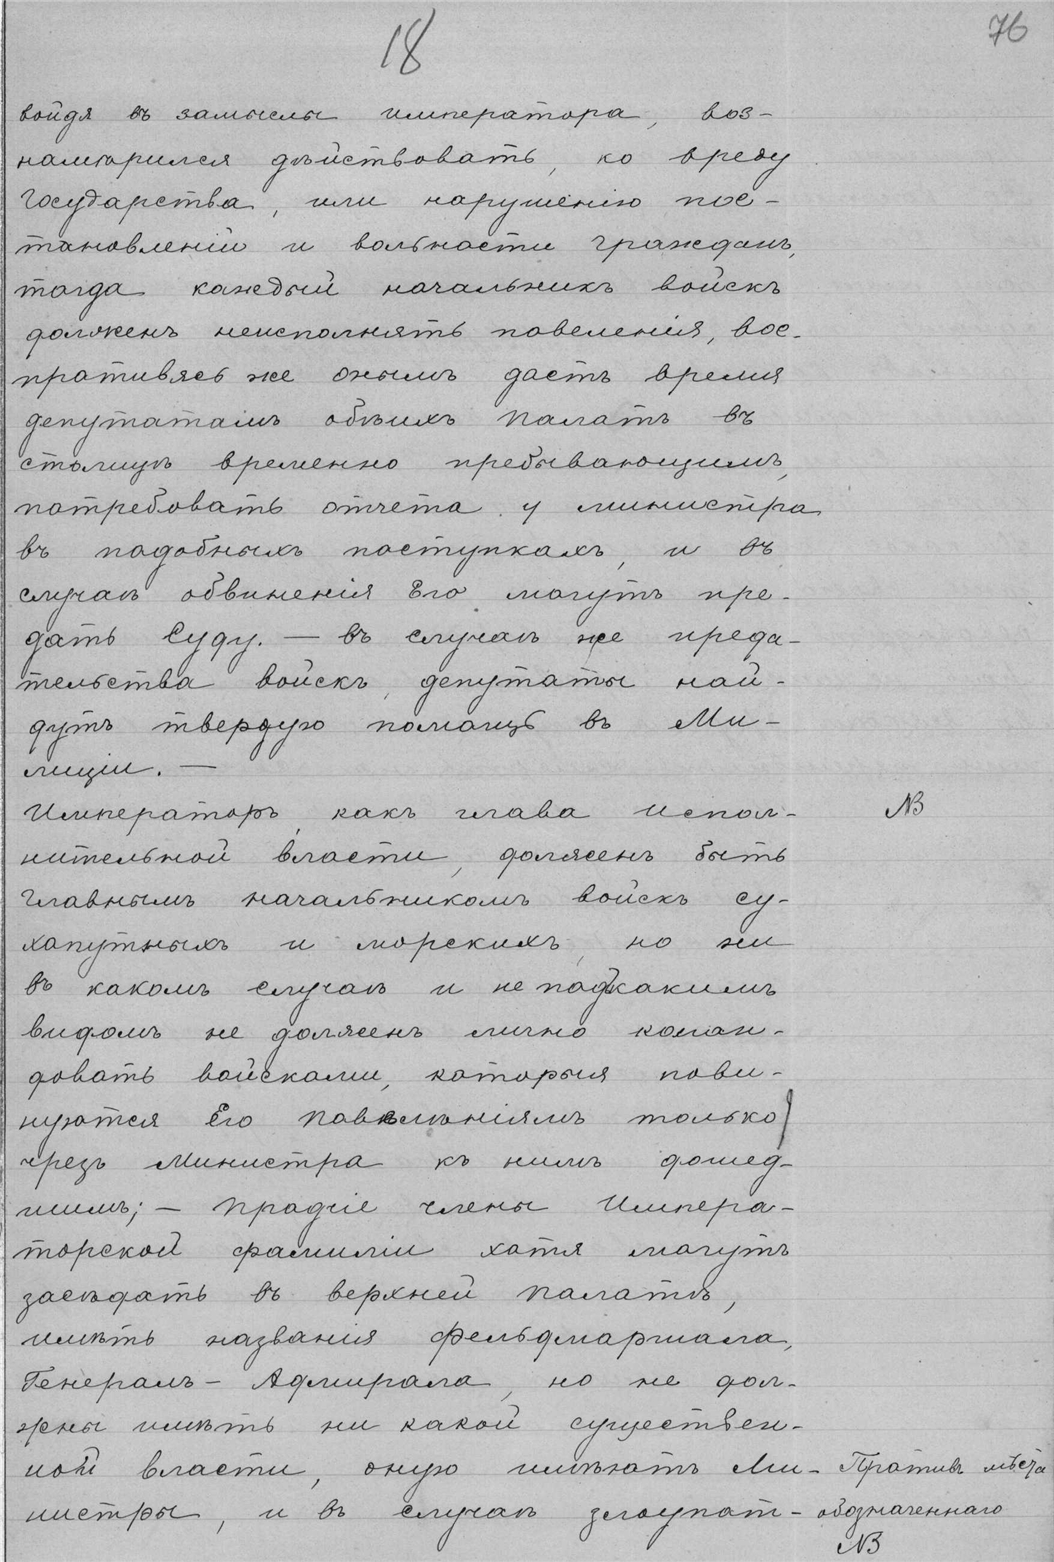 18
76
войдя въ замыслы императора, воз-
намѣрился дѣйствовать, ко вреду
Государства, или нарушенію пос-
тановленій и вольности гражданъ,
тогда каждый начальникъ войскъ
долженъ неисполнять повеленія, вос-
противясь же онымъ дастъ время
депутатамъ обѣихъ Палатъ въ
столицѣ временно пребывающимъ,
потребовать отчета у министра
въ подобныхъ поступкахъ, и въ
случаѣ обвиненія Его могутъ пре-
дать Суду. — въ случаѣ же преда-
тельства войскъ, депутаты най-
дутъ твердую помощь въ Ми-
лиціи. —
Императоръ, какъ глава испол-
NB
нительной власти, долженъ быть
главнымъ начальникомъ войскъ су-
хопутныхъ и морскихъ, но ни
въ какомъ случаѣ и не подъ какимъ
видомъ не долженъ лично коман-
довать войсками, которыя пови-
нуются Его повѣлѣніямъ только
чрезъ министра къ нимъ дошед-
шимъ; — Прочіе члены Импера-
торской фамиліи хотя могутъ
засѣдать въ верхней Палатѣ,
имѣть названія Фельдмаршала,
Генералъ-Адмирала, но не дол-
жны имѣть ни какой существен-
ной власти, оную имѣютъ Ми-
нистры, и въ случаѣ злоупот-
Противъ мѣста
обозначеннаго
NB